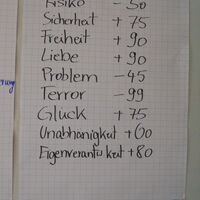 Risiko - 50
Sicherheit + 75
Freiheit + 90
Liebe + 90
Problem - 45
Terror - 99
Gluck + 75
Unabhanigkut + 00
Eigenverantwkut +80